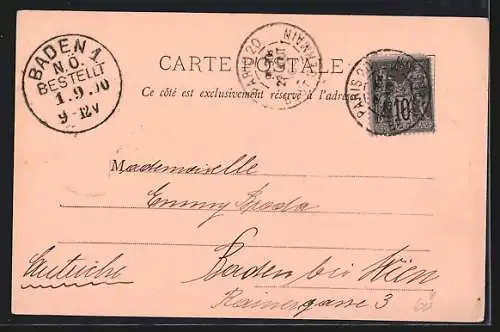 BADEN 1
N.Ö.
BESTELLT
1.9.00
9-12V
PARIS 20
CARTE POSTALE
Ce côté est exclusivement réservé à l'adresse
PARIS 20
10
Mademoiselle
Emmy
Autriche
Baden bei Wien
Rainergasse 3